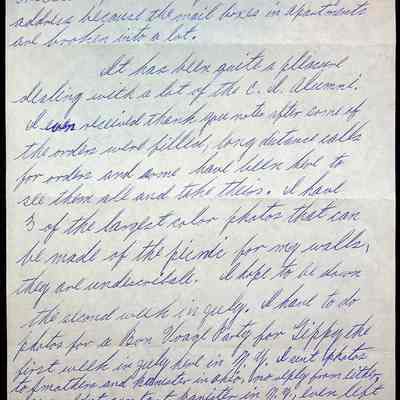 address because the mail boxes in apartments
are broken into a lot.
It has been quite a pleasure
dealing with a lot of the C. I. Alumni.
I even received thank you notes after some of
the orders were filled, long distance calls
for orders and some have been here to
see them all and take theirs. I have
3 of the largest color photos that can
be made of the picnic for my walls,
they are undescribable. I hope to be down
the second week in July. I have to do
photos for a Bon Voage Party for Tippy the
first week in July here in N.Y. I sent photos
to and in Ohio, no reply from either,
even left